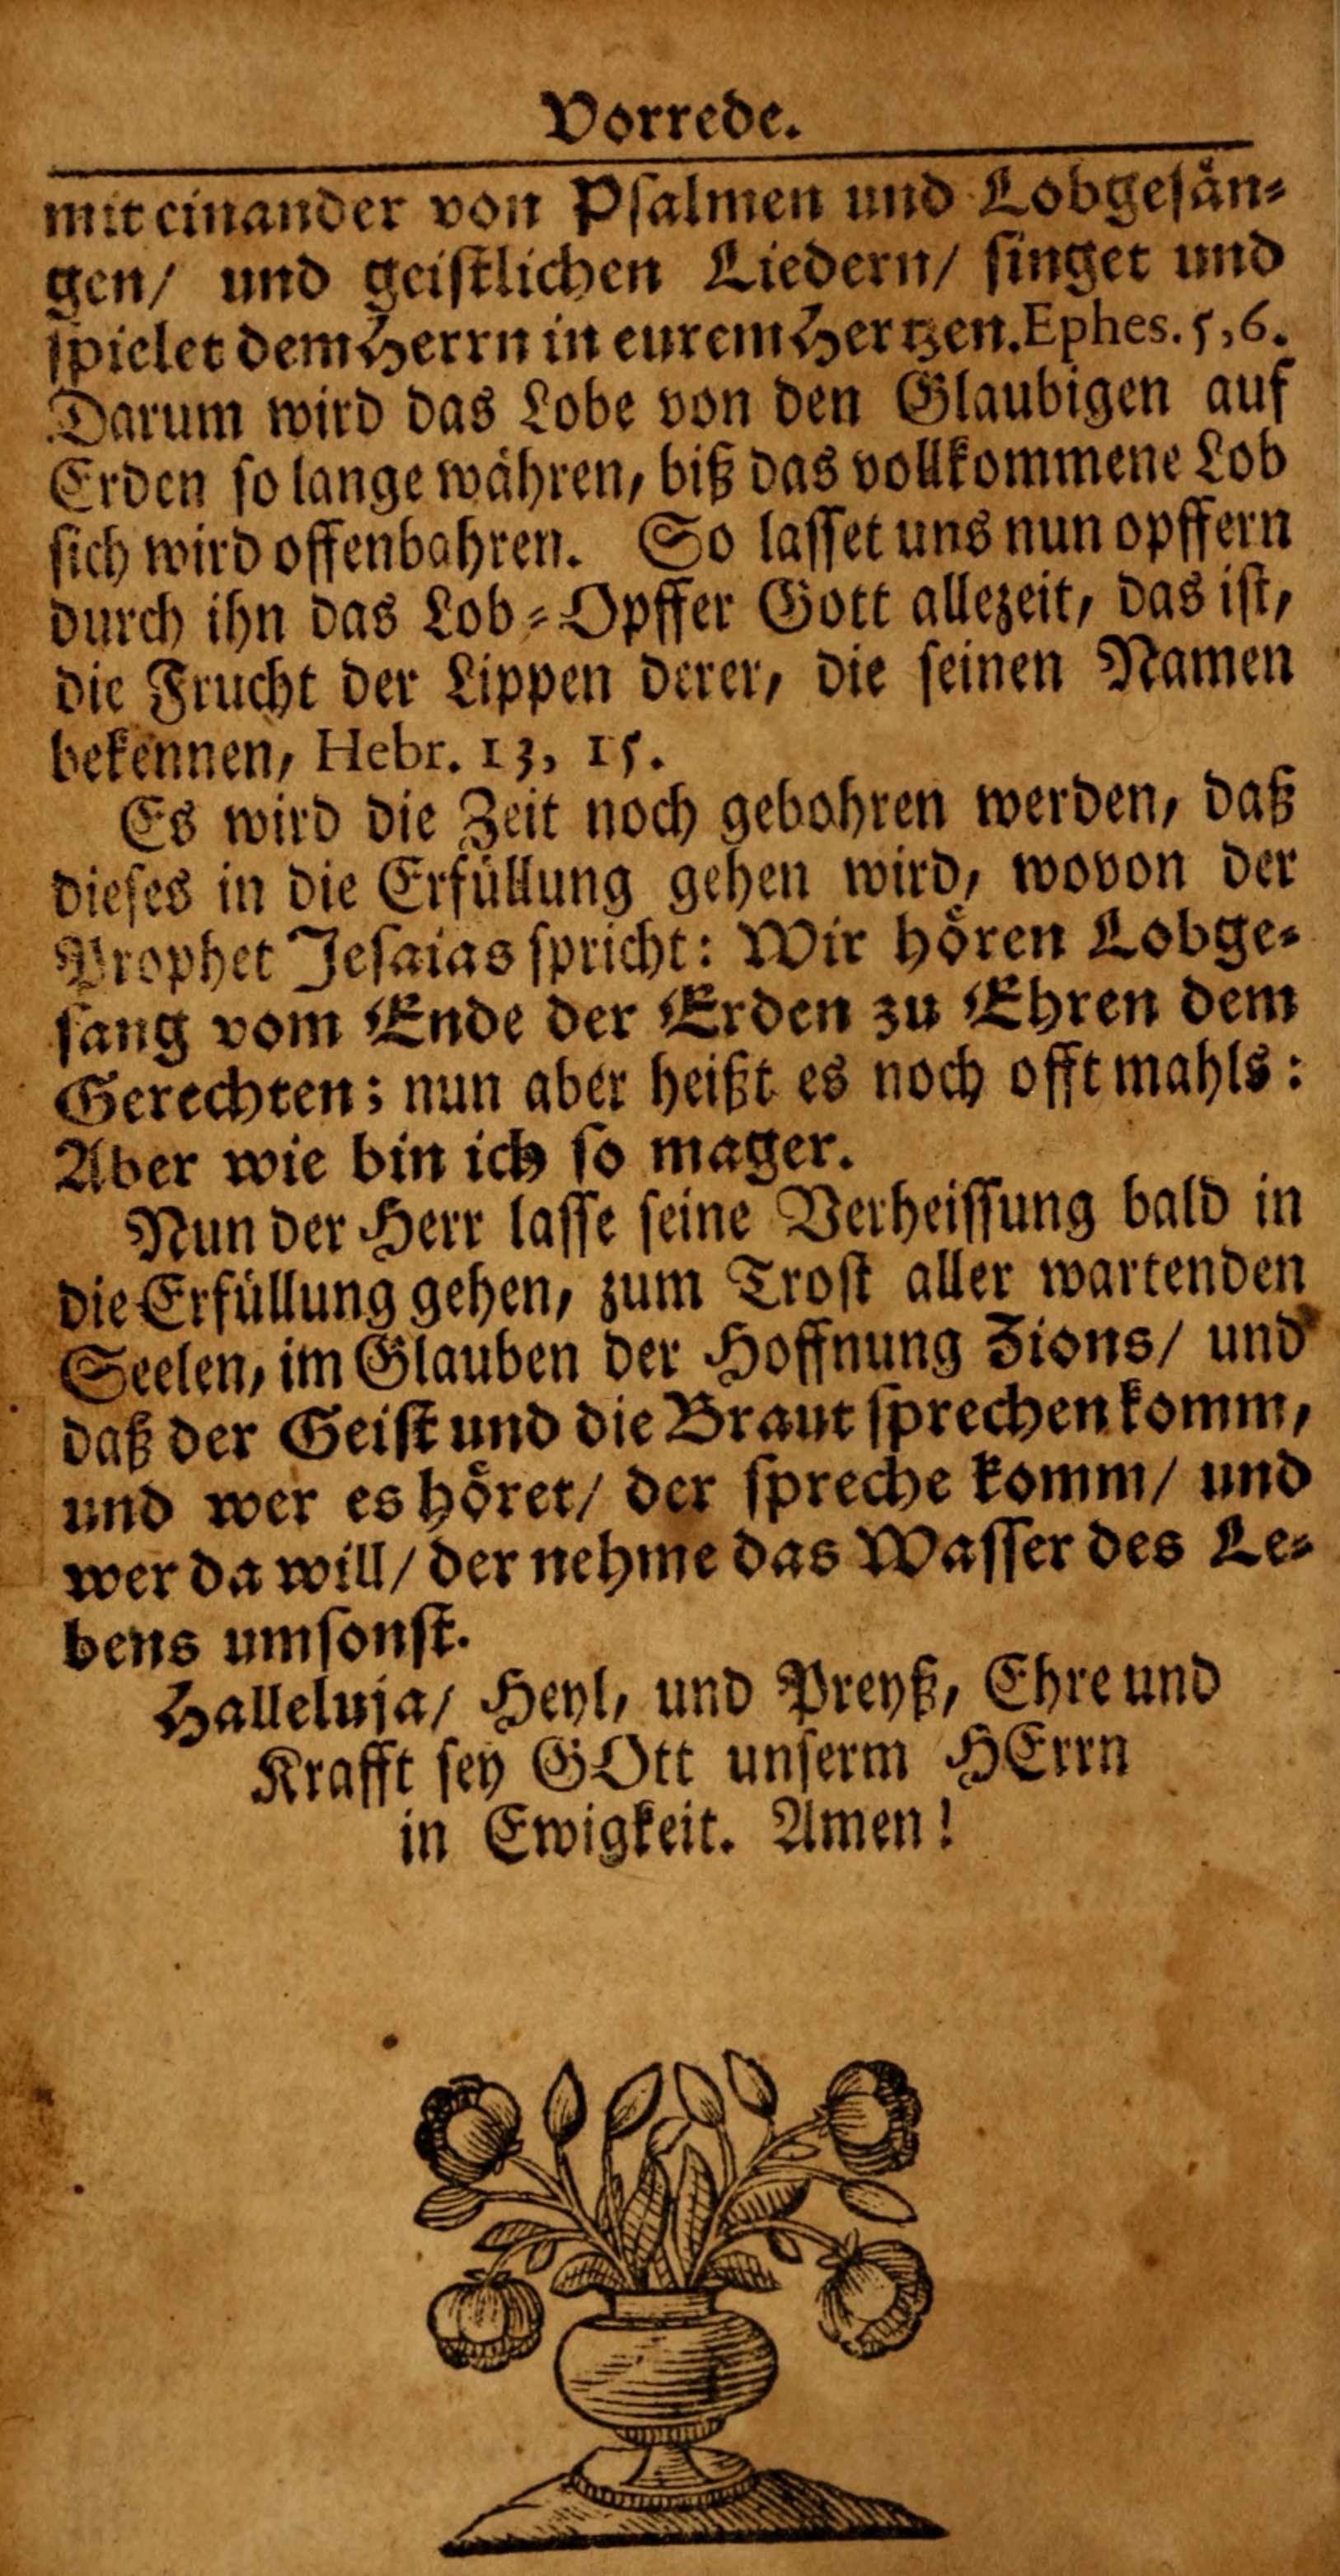 Vorrede.
mit einander von Psalmen und Lobgesän-
gen/ und geistlichen Liedern/ singet und
spielet dem Herrn in eurem Hertzen. Ephes. 5, 6.
Darum wird das Lobe von den Glaubigen auf
Erden so lange währen, biß das vollkommene Lob
sich wird offenbahren. So lasset uns nun opffern
durch ihn das Lob-Opffer Gott allezeit, das ist,
die Frucht der Lippen derer, die seinen Namen
bekennen, Hebr. 13, 15.
Es wird die Zeit noch gebohren werden, daß
dieses in die Erfüllung gehen wird, wovon der
Prophet Jesaias spricht: Wir hören Lobge-
sang vom Ende der Erden zu Ehren dem
Gerechten; nun aber heißt es noch offtmahls:
Aber wie bin ich so mager.
Nun der Herr lasse seine Verheissung bald in
die Erfüllung gehen, zum Trost aller wartenden
Seelen, im Glauben der Hoffnung Zions/ und
daß der Geist und die Braut sprechen komm,
und wer es höret/ der spreche komm/ und
wer da will/ der nehme das Wasser des Le-
bens umsonst.
Halleluja/ Heyl, und Preyß, Ehre und
Krafft sey GOtt unserm HErrn
in Ewigkeit. Amen!